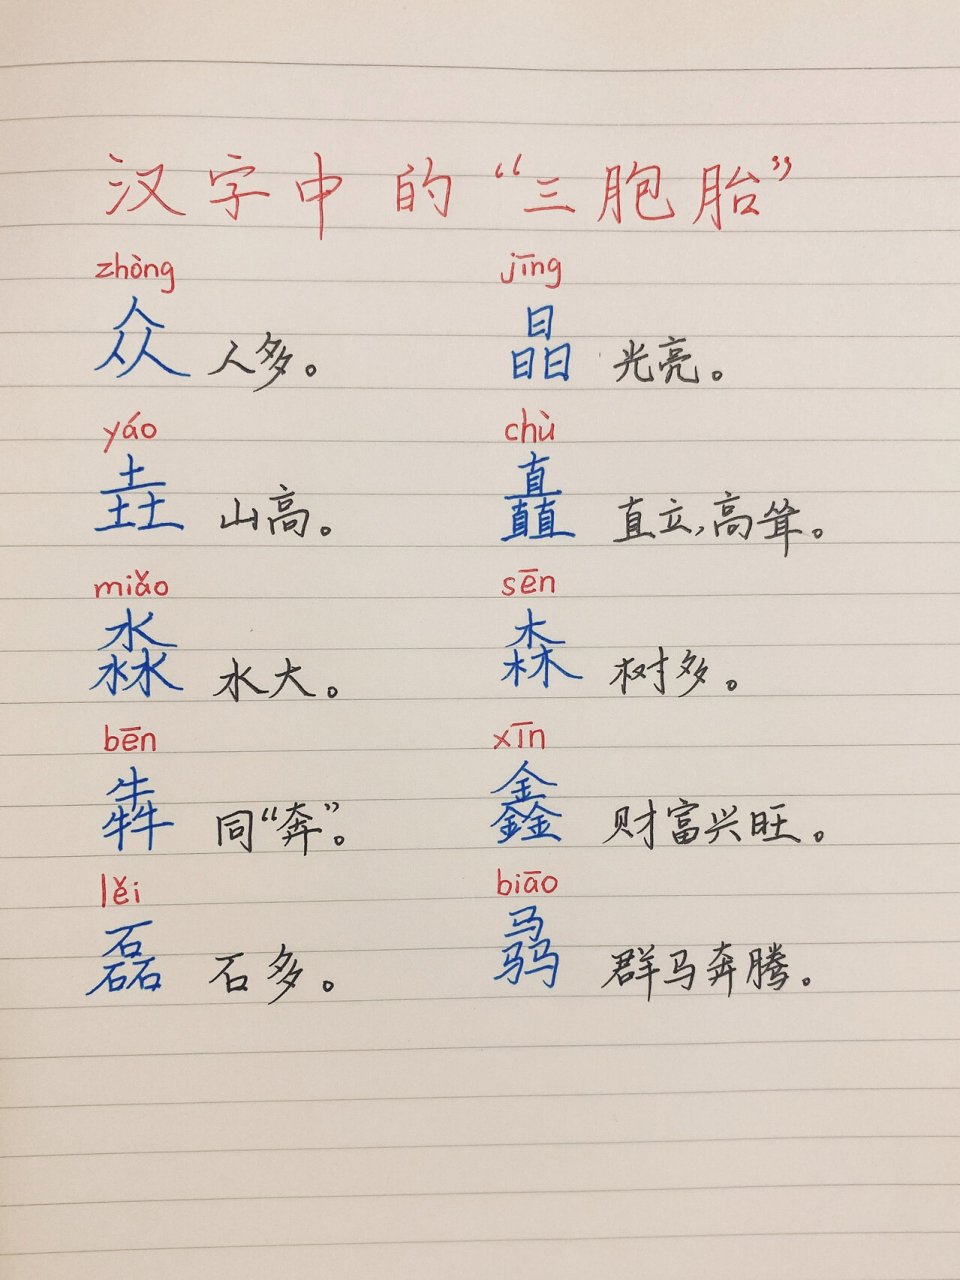 汉字中的“三胞胎”
zhòng jīng
众 人多。 晶 光亮。
yáo chù
垚 山高。 矗 直立,高耸。
miǎo sēn
淼 水大。 森 树多。
bēn xīn
犇 同“奔”。 鑫 财富兴旺。
lěi biāo
磊 石多。 骉 群马奔腾。